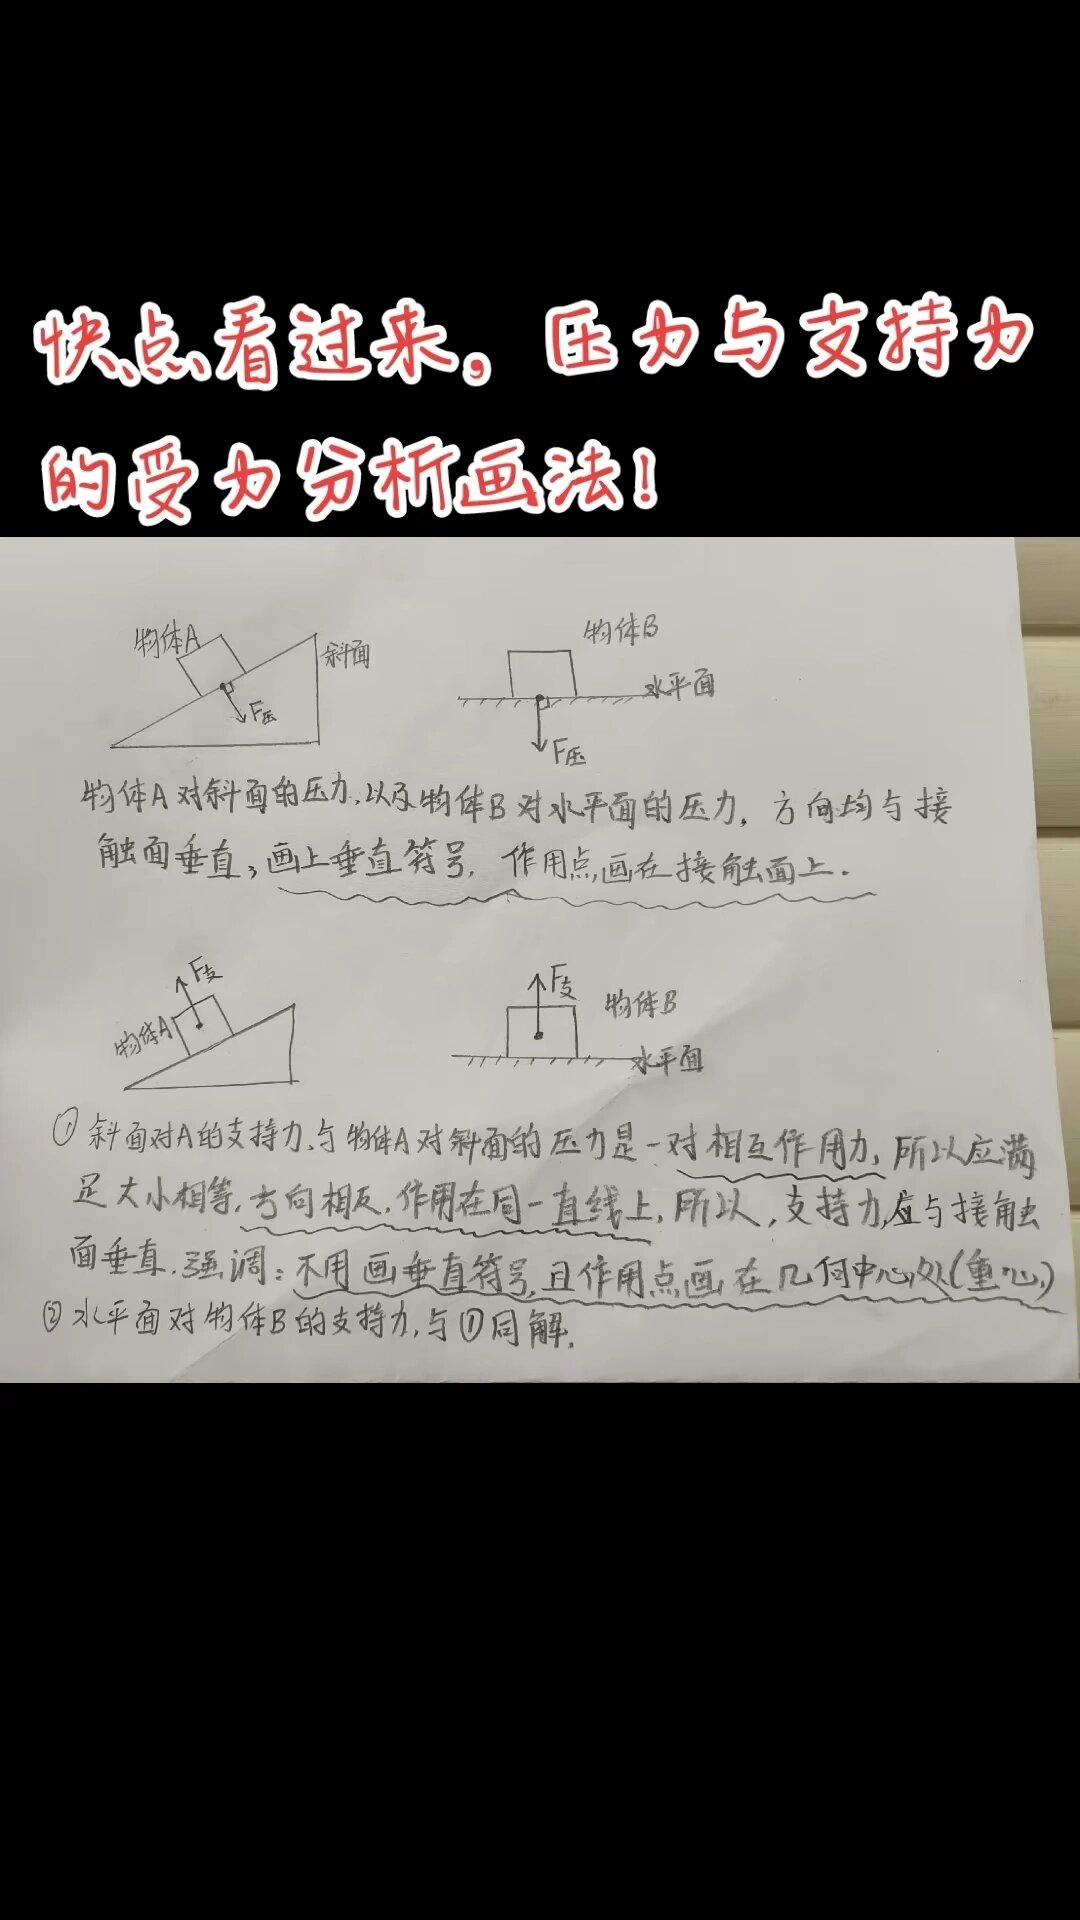 快点看过来，压力与支持力
的受力分析画法！
物体A
斜面
F压
物体B
水平面
F压
物体A对斜面的压力，以及物体B对水平面的压力，方向均与接
触面垂直，画上垂直符号，作用点画在接触面上.
F支
物体A
F支
物体B
水平面
①斜面对A的支持力，与物体A对斜面的压力是一对相互作用力，所以应满
足大小相等，方向相反，作用在同一直线上，所以，支持力，应与接触
面垂直.强调：不用画垂直符号，且作用点画在几何中心处(重心)
②水平面对物体B的支持力，与①同解.